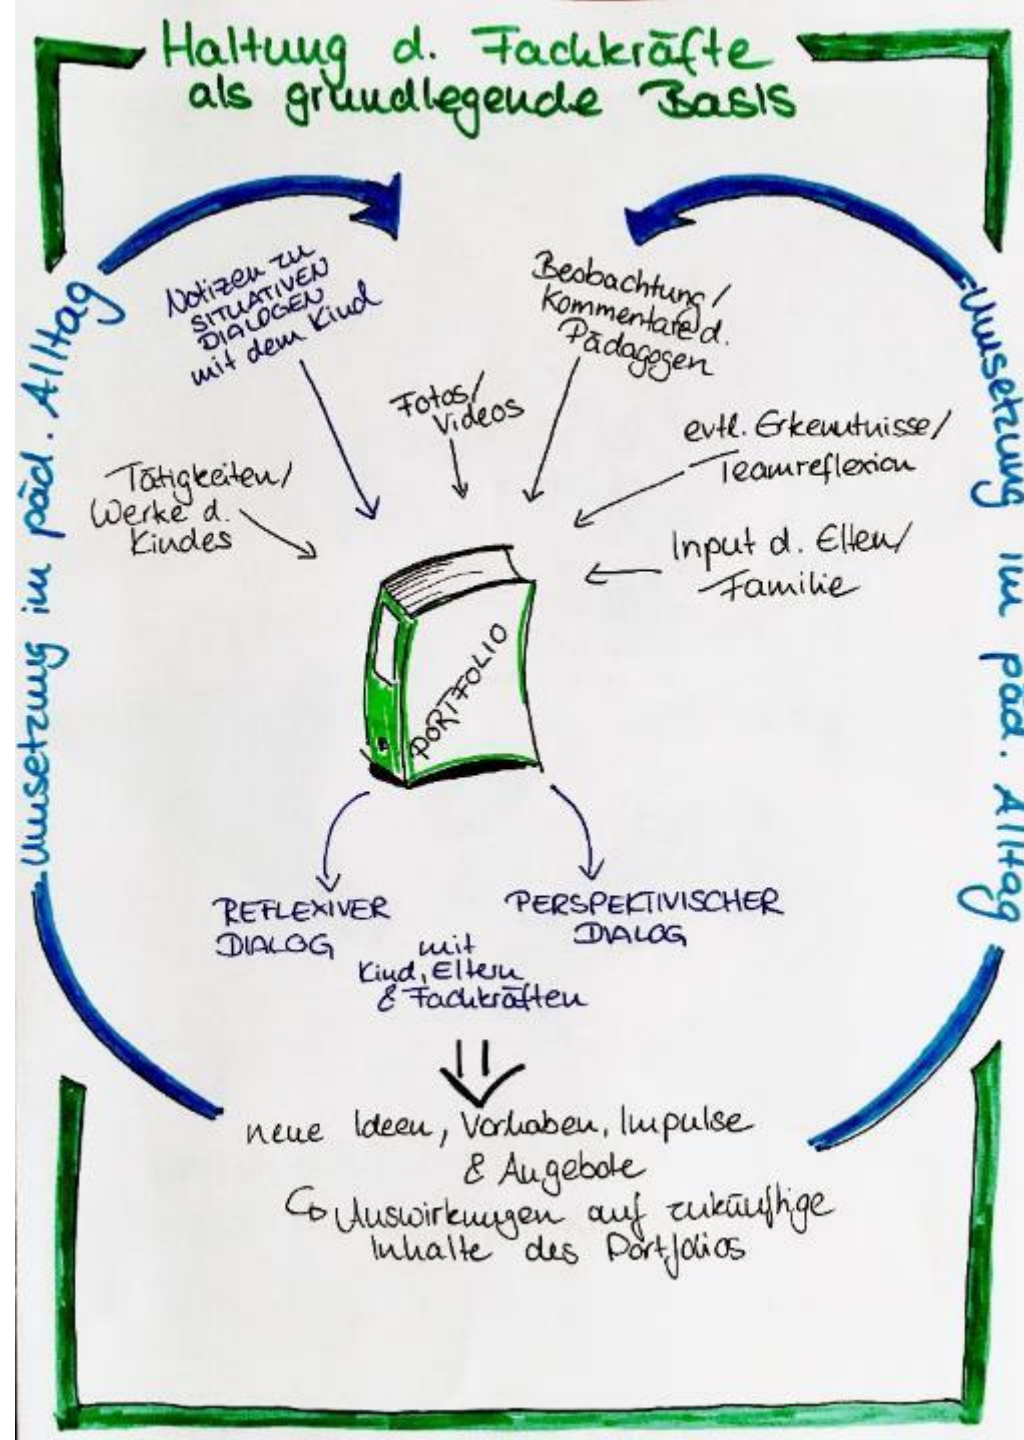 Haltung d. Fachkräfte
als grundlegende Basis
Umsetzung im päd. Alltag
Umsetzung im päd. Alltag
Notizen zu
SITUATIVEN
DIALOGEN
mit dem Kind
Beobachtung/
Kommentare d.
Pädagogen
Fotos/
Videos
evtl. Erkenntnisse/
Teamreflexion
Tätigkeiten/
Werke d.
Kindes
Input d. Eltern/
Familie
PORTFOLIO
REFLEXIVER
DIALOG
PERSPEKTIVISCHER
DIALOG
mit
Kind, Eltern
& Fachkräften
neue Ideen, Vorhaben, Impulse
& Angebote
Auswirkungen auf zukünftige
Inhalte des Portfolios